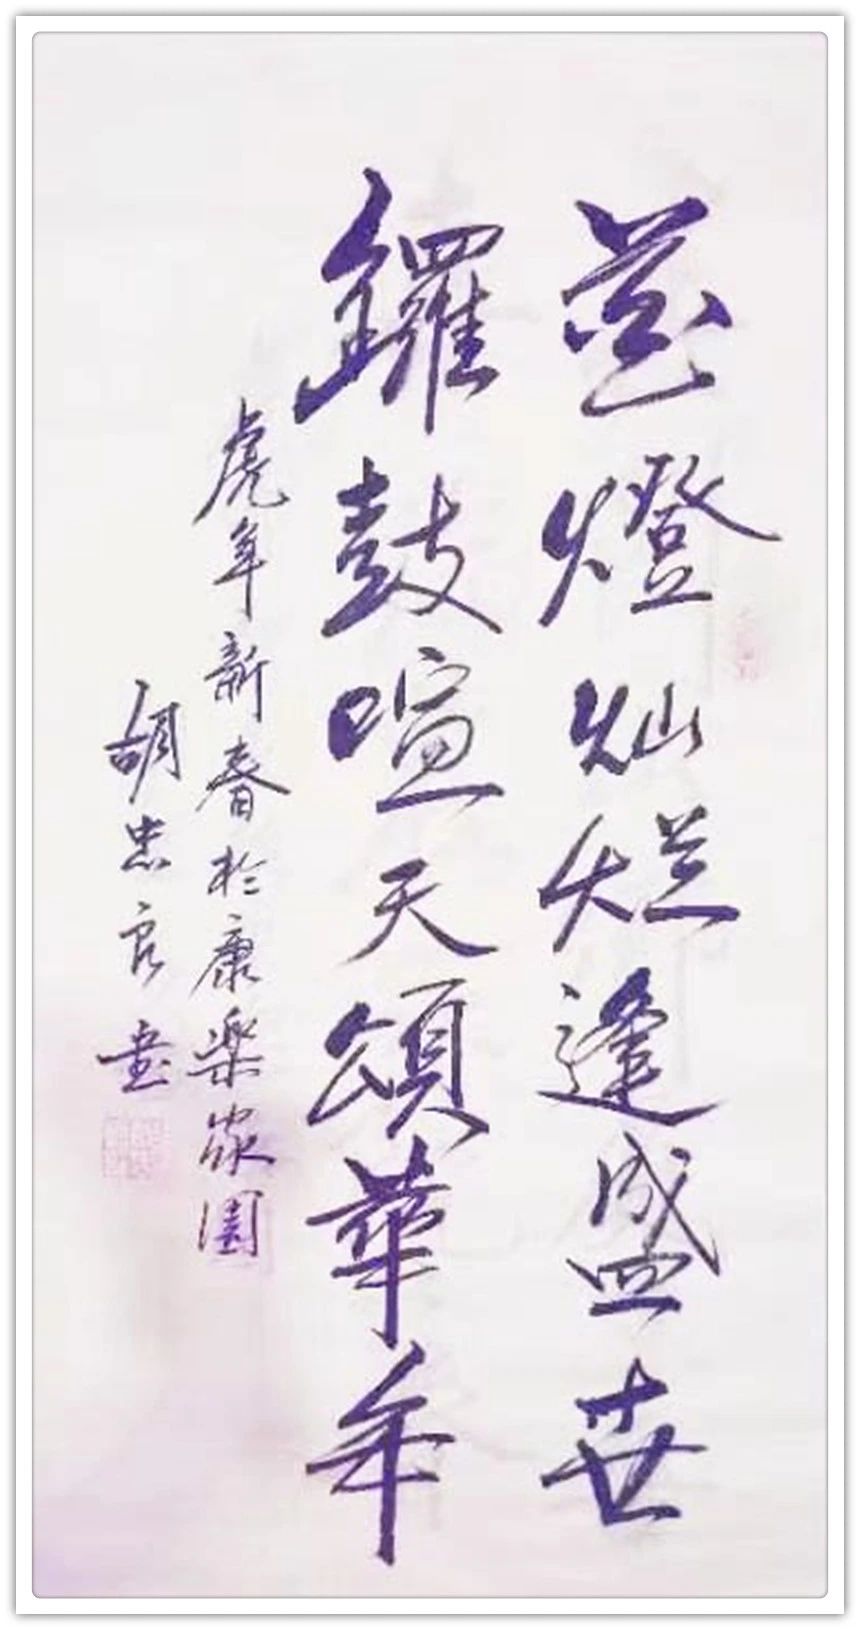 花燈灿烂逢盛世
鑼鼓喧天頌華年
虎年新春於康樂家園
胡忠良書